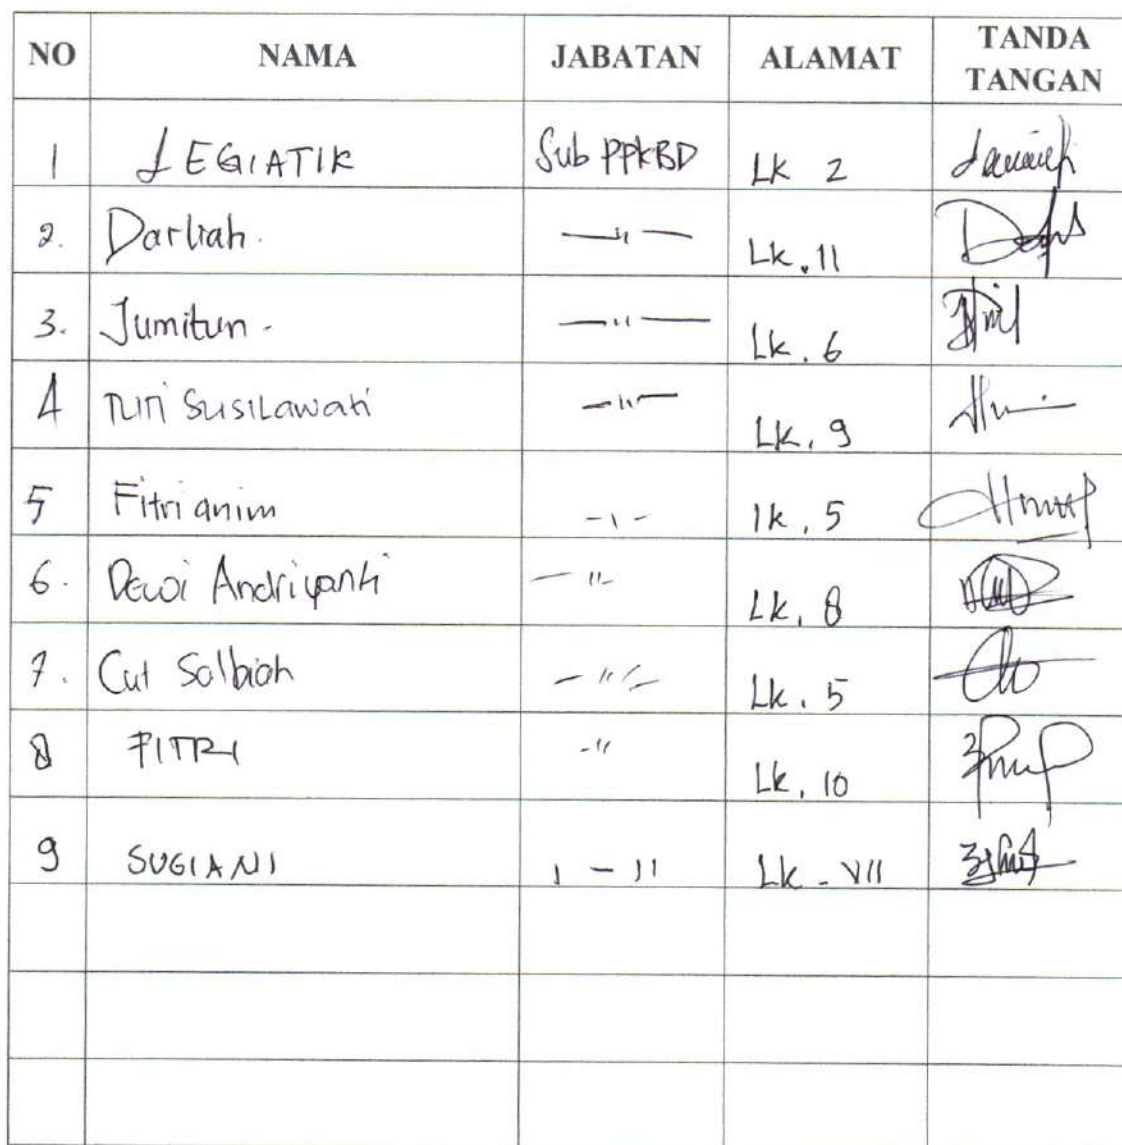 NO NAMA JABATAN ALAMAT TANDA TANGAN
1 LEGIATIK Sub PPKBD Lk 2
2. Darliah. —"— Lk. 11
3. Jumitun. —"— Lk. 6
4 Susilawati —"— Lk. 9
5 Fitrianim -"- lk. 5
6. Dewi Andriyanti —"- Lk. 8
7. Cut Salbiah —"— Lk. 5
8 FITRI -" Lk. 10
9 SUGIANI ı - ıı Lk - VII